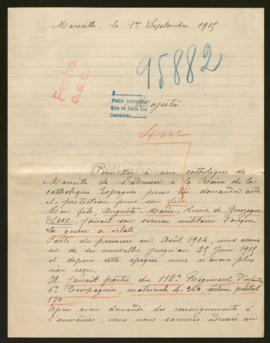 Marseille le 1er Septembre 1915
95882
Majesté
Luc
Permettez à une catholique de
Marseille de s'adresser à la Reine de la
catholique Espagne pour lui demander
sa protection pour son fils.
Mon fils, Auguste Marie Léonce de Gonzague
Luc faisait son service militaire lorsque
la guerre a éclaté.
Parti des premiers en Août 1914, nous avons
eu de ses nouvelles jusqu'au 25 Juin 1915
et depuis cette époque nous n'avons plus
rien reçu.
Il faisait partie du 112e Régiment d'Inf
6e Compagnie, matricule 4.360 secteur postal
170
Après avoir demandé des renseignements à
nous nous sommes adressés au